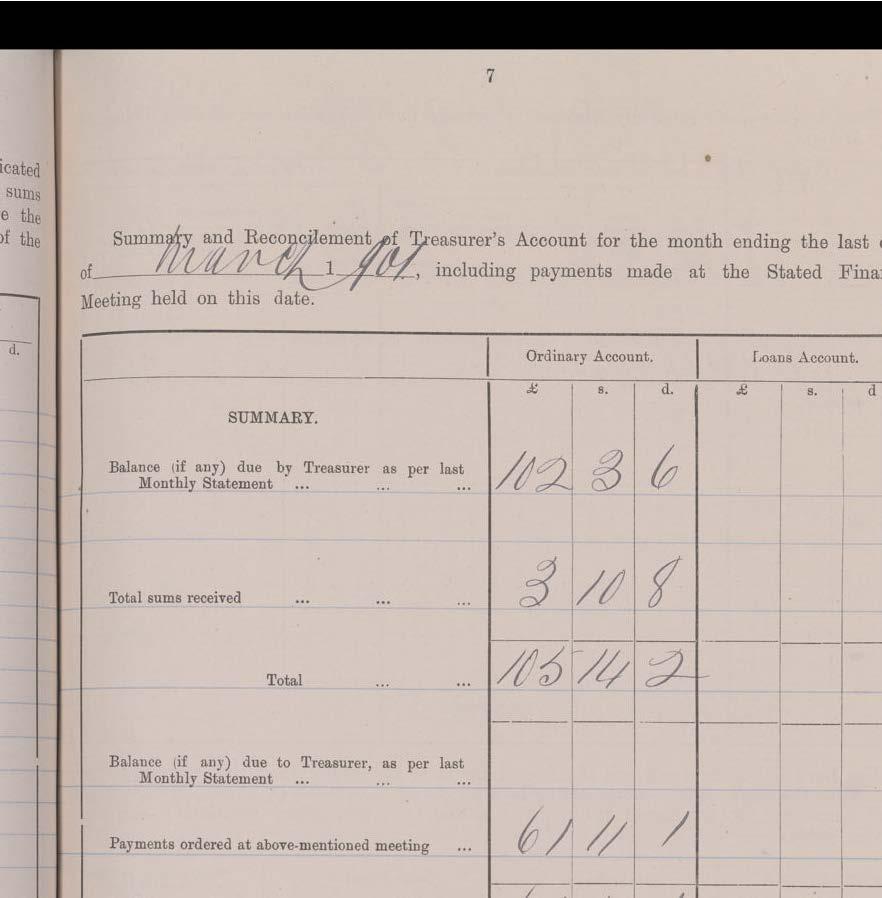 7
icated
sums
e the
of the
d.
Summary and Reconcilement of Treasurer's Account for the month ending the last
of March 1901, including payments made at the Stated Fina
Meeting held on this date.
Ordinary Account. Loans Account.
£ s. d. £ s. d
SUMMARY.
Balance (if any) due by Treasurer as per last
Monthly Statement ... ... ... 102 3 6
Total sums received ... ... ... 3 10 8
Total ... ... 105 14 2
Balance (if any) due to Treasurer, as per last
Monthly Statement ... ... ...
Payments ordered at above-mentioned meeting ... 61 11 1